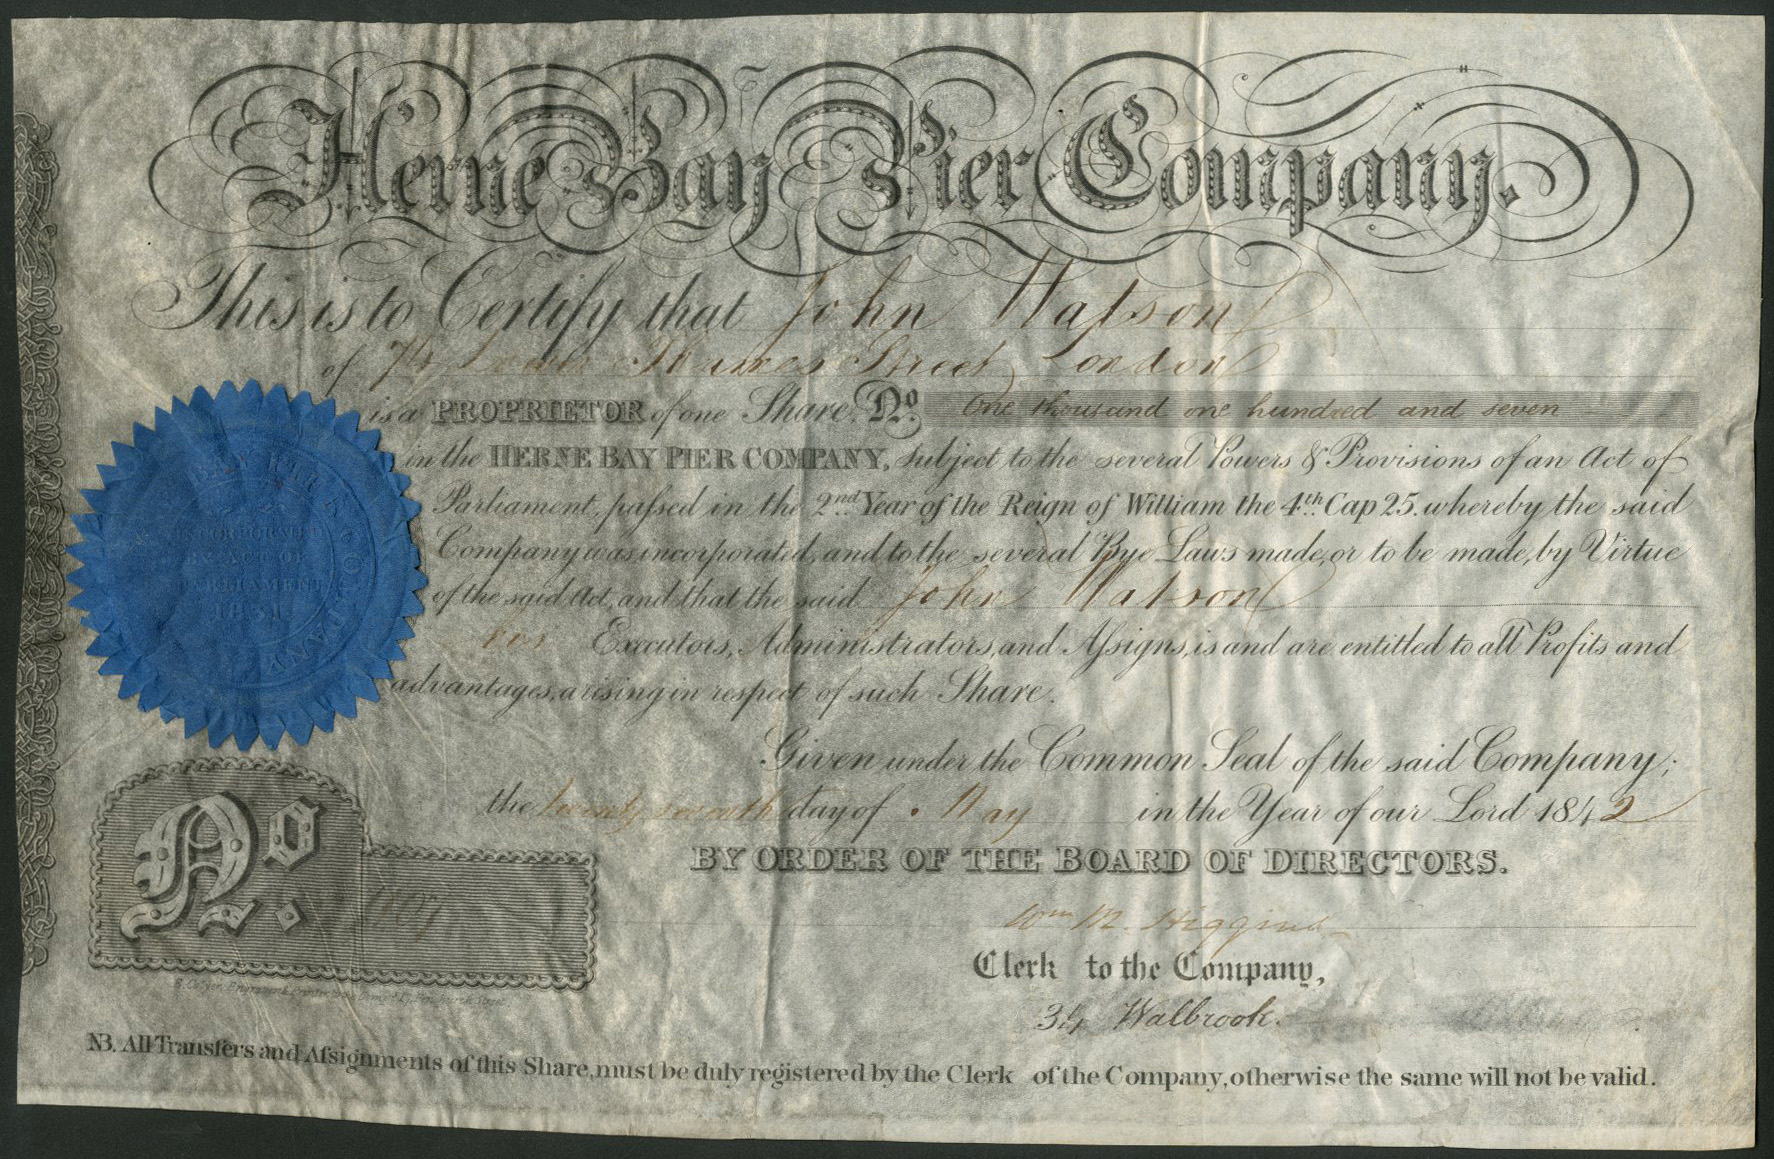 Herne Bay Pier Company.
This is to Certify that John Watson
of 74 Lower Thames Street London
is a PROPRIETOR of one Share, No. One thousand one hundred and seven
in the HERNE BAY PIER COMPANY, subject to the several Powers & Provisions of an Act of
Parliament, passed in the 2nd Year of the Reign of William the 4th Cap 25. whereby the said
Company was incorporated, and to the several Bye Laws made, or to be made, by Virtue
of the said Act, and that the said John Watson
his Executors, Administrators, and Assigns, is and are entitled to all Profits and
advantages, arising in respect of such Share.
PIER COMPANY
INCORPORATED
BY ACT OF
PARLIAMENT
1831
Given under the Common Seal of the said Company;
the twenty seventh day of May in the Year of our Lord 1842
BY ORDER OF THE BOARD OF DIRECTORS.
No. 1107
Wm M. Higgins
Clerk to the Company,
34 Walbrook.
Engraver & Printer Fenchurch Street.
NB. All Transfers and Assignments of this Share, must be duly registered by the Clerk of the Company, otherwise the same will not be valid.